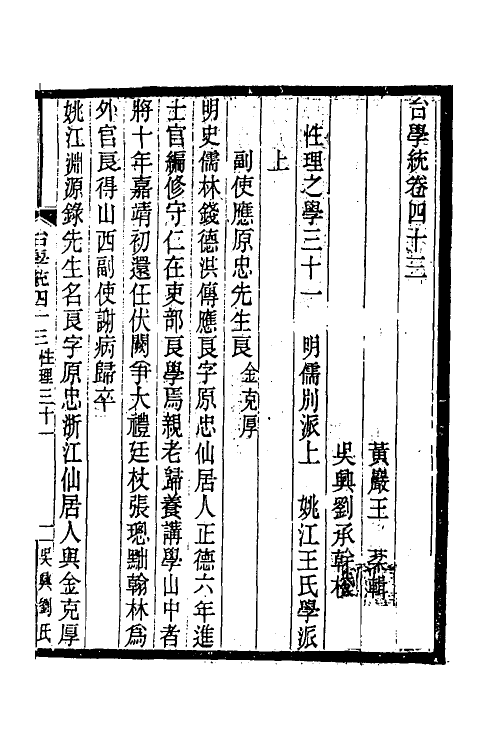 台學統卷四十三
黃巖王 棻輯
吳興劉承幹校
性理之學三十一 明儒別派上 姚江王氏學派
上
副使應原忠先生良 金克厚
明史儒林錢德洪傳應良字原忠仙居人正德六年進
士官編修守仁在吏部良學焉親老歸養講學山中者
將十年嘉靖初還任伏闕爭大禮廷杖張璁黜翰林爲
外官良得山西副使謝病歸卒
姚江淵源錄先生名良字原忠浙江仙居人與金克厚
台學統四十三 性理三十一 一 吳興劉氏